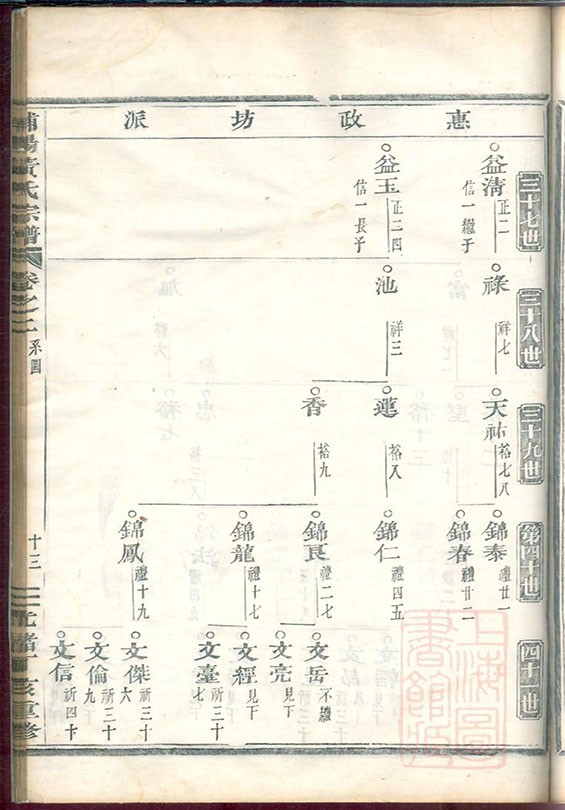 惠政坊派
三十七世
益清 正二 信一繼子
益玉 正二四 信一長子
三十八世
祿 祥七
池 祥三
三十九世
天祐 裕七八
蓮 裕八
香 裕九
第四十世
錦泰 禮廿一
錦春 禮廿二
錦仁 禮四五
錦良 禮二七
錦龍 禮十七
錦鳳 禮十九
四十一世
文岳 不繼
文亮 見下
文經 見下
文臺 祈三十七
文傑 祈三十六
文倫 祈三十九
文信 祈四十
浦陽黃氏宗譜
卷之二
系圖
十三
上海圖書館藏